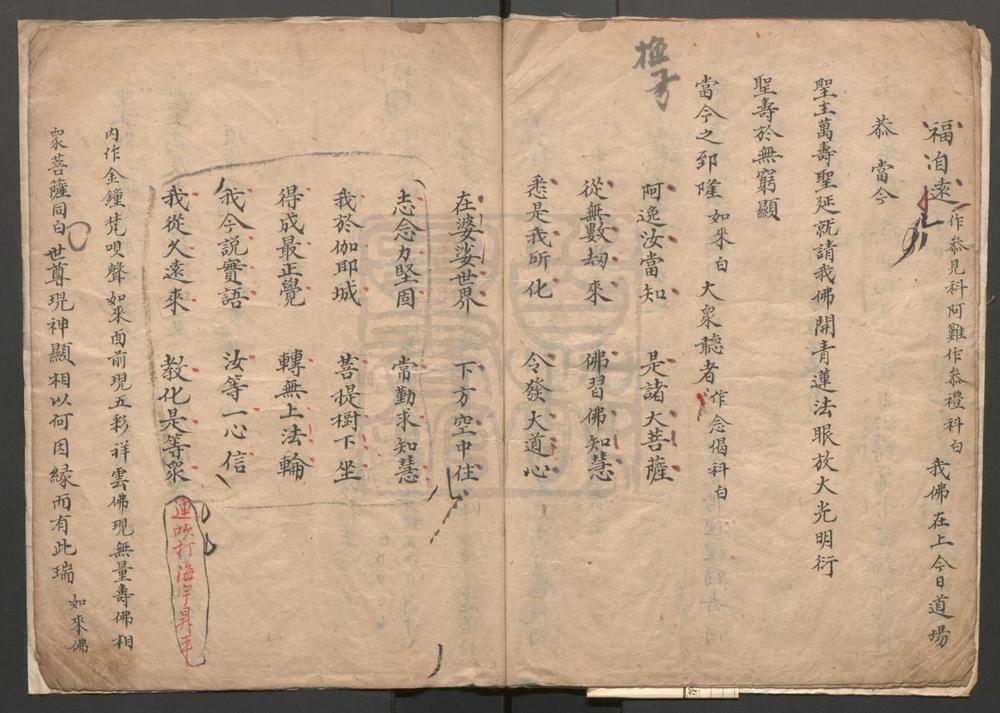 福洎遠作叅見科阿難作叅禮科白 我佛在上今日道場
恭 當今
聖主萬壽聖延就請我佛開青蓮法眼放大光明衍
聖壽於無窮顯
當今之郅隆 如來白 大衆聽者 作念偈科白
阿逸汝當知 是諸大菩薩
從無數劫來 佛習佛知慧
悉是我所化 令發大道心
在婆娑世界 下方空中住
志念力堅固 常勤求知慧
我於伽耶城 菩提樹下坐
得成最正覺 轉無上法輪
我今説實語 汝等一心信
我從久遠來 教化是等衆
連吹打海宇昇平
内作金鐘梵唄聲如來面前現五彩祥雲佛現無量壽佛相
衆菩薩同白 世尊現神顯相以何因緣而有此瑞 如來佛